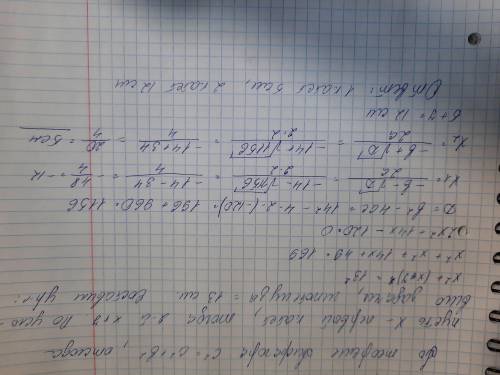 По теореме Пифагора c² = a² + b², отсюда
пусть x - первой катет, тогда 2-й x+7 По усло-
вию задачи, гипотенуза = 13 см. Составим ур:
x² + (x+7)² = 13²
x² + x² + 14x + 49 = 169
2x² - 14x - 120 = 0
D = b² - 4ac = 14² - 4·2·(-120) = 196 + 960 = 1156
x₁ = -b-√D / 2a = -14-√1156 / 2·2 = -14-34 / 4 = -48 / 4 = -12
x₂ = -b+√D / 2a = -14+√1156 / 2·2 = -14+34 / 4 = 20 / 4 = 5 см
5+7 = 12 см
Ответ: 1 катет 5 см, 2 катет 12 см